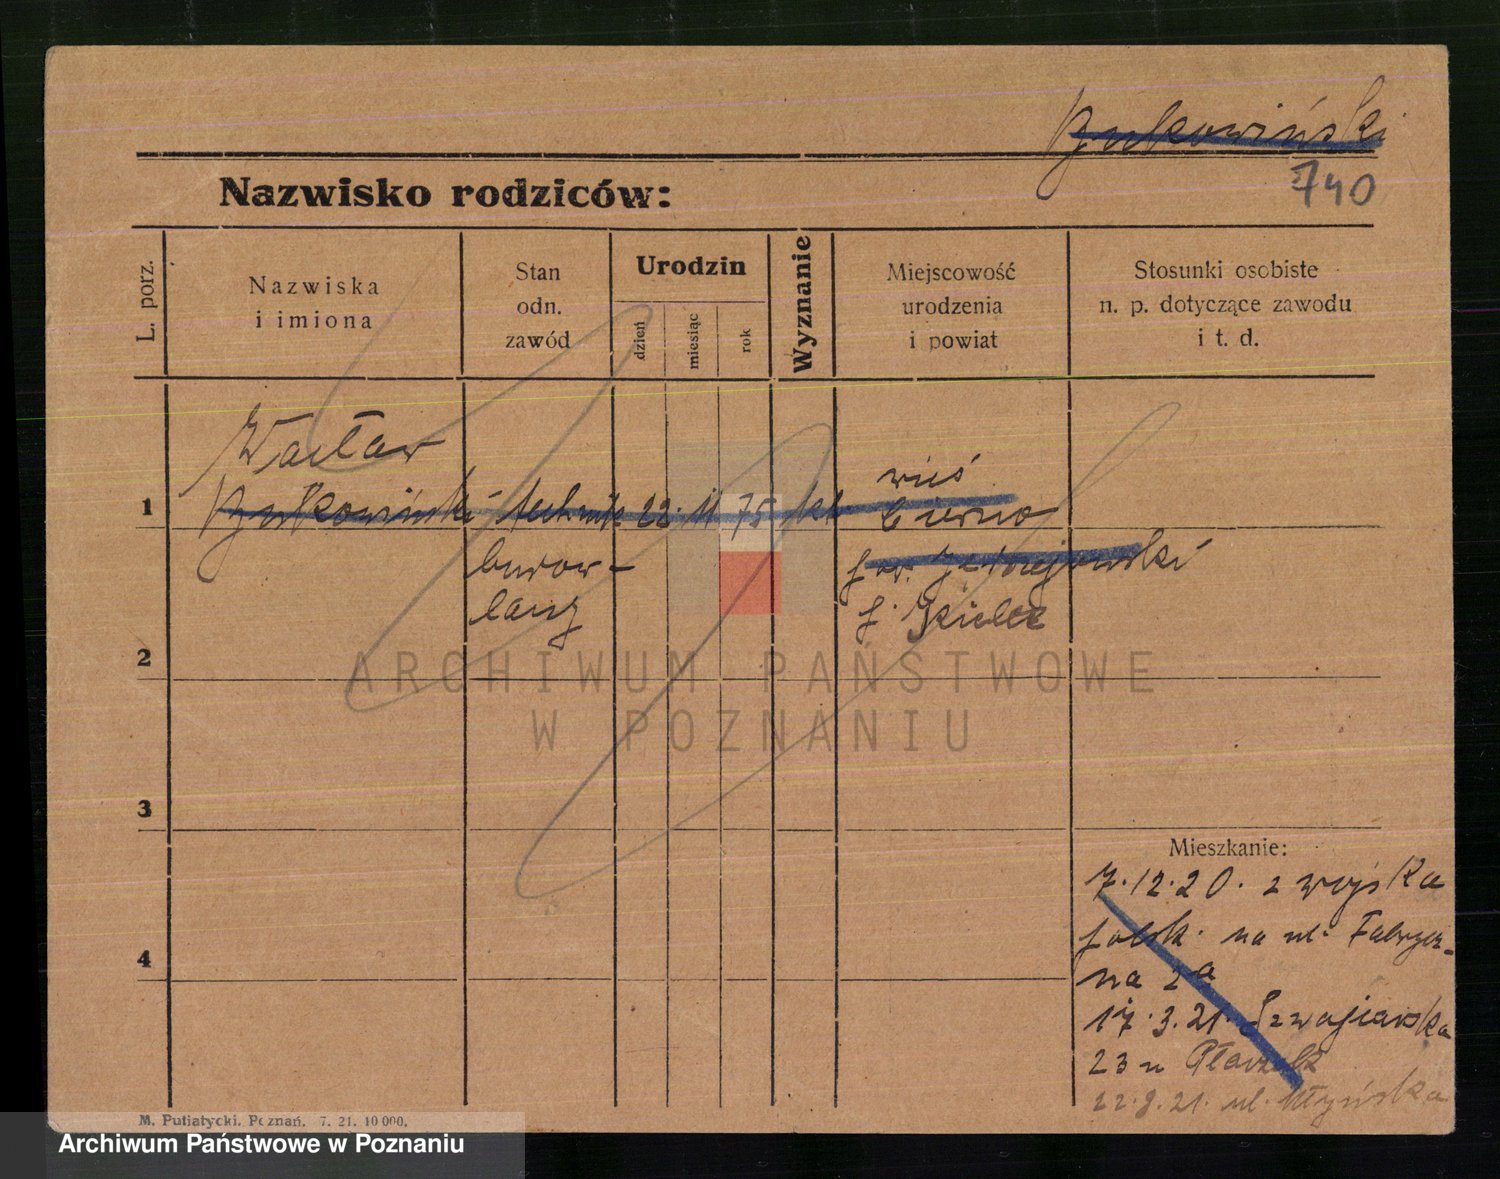 740
Nazwisko rodziców:
L. porz.
Nazwiska
i imiona
Stan
odn.
zawód
Urodzin
dzień
miesiąc
rok
Wyznanie
Miejscowość
urodzenia
i powiat
Stosunki osobiste
n. p. dotyczące zawodu
i t. d.
Wacław
wieś
1
technik 22. 11 75 kt
Cierno
budow-
pow. Jędrzejowski
lany
p. Kielce
2
3
4
Mieszkanie:
7.12.20. z wojska
polsk. na ul. Fabrycz-
na 2a
17.3.21. Szwajcarska
23 u
22.9.21. ul. Młyńska
M. Putiatycki, Poznań. 7. 21. 10 000.
ARCHIWUM PAŃSTWOWE
W POZNANIU
Archiwum Państwowe w Poznaniu